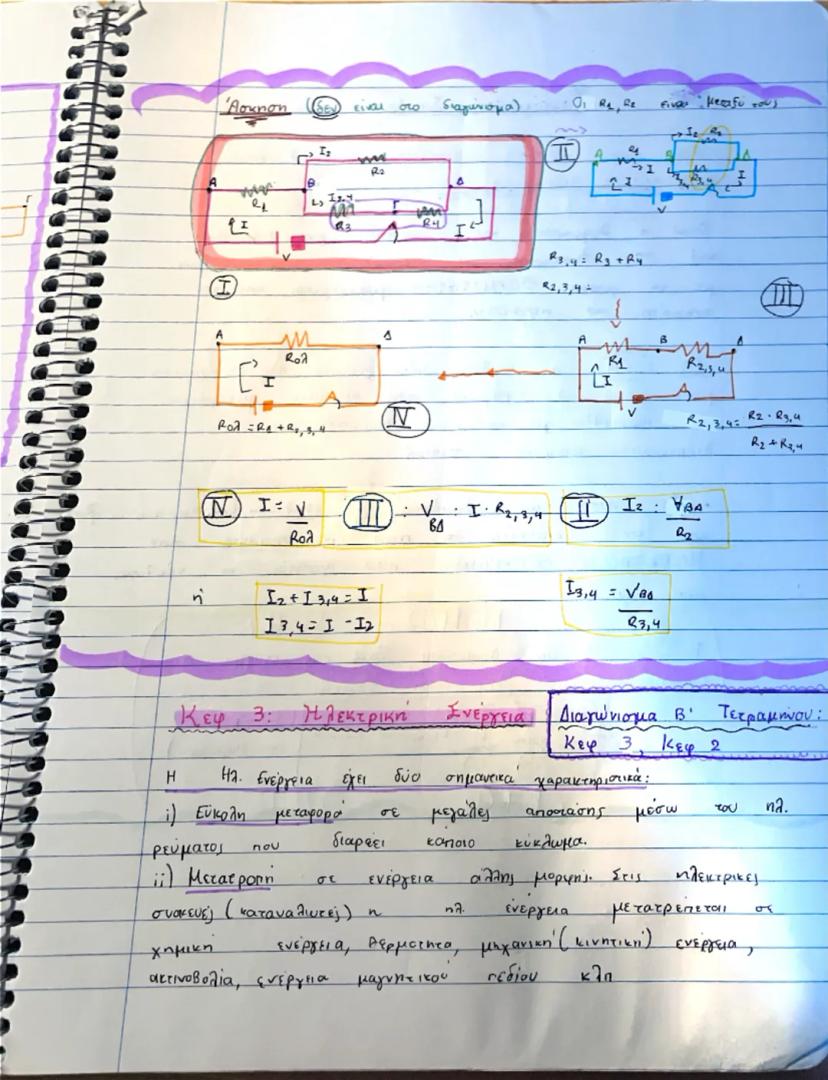 Άσκηση (δεν είναι στο διαγώνισμα) Οι R1, R2 είναι μεταξύ τους
I2
R2
A
B
Δ
R1
I3,4
Γ
R3
R4
I
I
V
I
II
I2
R2
A
R1
B
Δ
I
R3,4
I3,4
I
I
V
R3,4 = R3 + R4
R2,3,4 =
III
A
Δ
Rολ
I
Rολ = R1 + R2,3,4
IV
A
B
Δ
R1
R2,3,4
I
V
R2,3,4 = R2 · R3,4
R2 + R3,4
IV I = V
Rολ
III : V BΔ : I · R2,3,4
II I2 : VBΔ
R2
ή
I2 + I3,4 = I
I3,4 = I - I2
I3,4 = VBΔ
R3,4
Κεφ 3: Ηλεκτρική Ενέργεια
Διαγώνισμα Β' Τετραμήνου:
Κεφ 3, Κεφ 2
Η Ηλ. Ενέργεια έχει δύο σημαντικά χαρακτηριστικά:
i) Εύκολη μεταφορά σε μεγάλες αποστάσης μέσω του ηλ.
ρεύματος που διαρέει κάποιο κύκλωμα.
ii) Μετατροπή σε ενέργεια άλλης μορφής. Στις ηλεκτρικές
συσκευές (καταναλωτές) η ηλ. ενέργεια μετατρέπεται σε
χημική ενέργεια, θερμότητα, μηχανική (κινητική) ενέργεια,
ακτινοβολία, ενέργεια μαγνητικού πεδίου κλπ